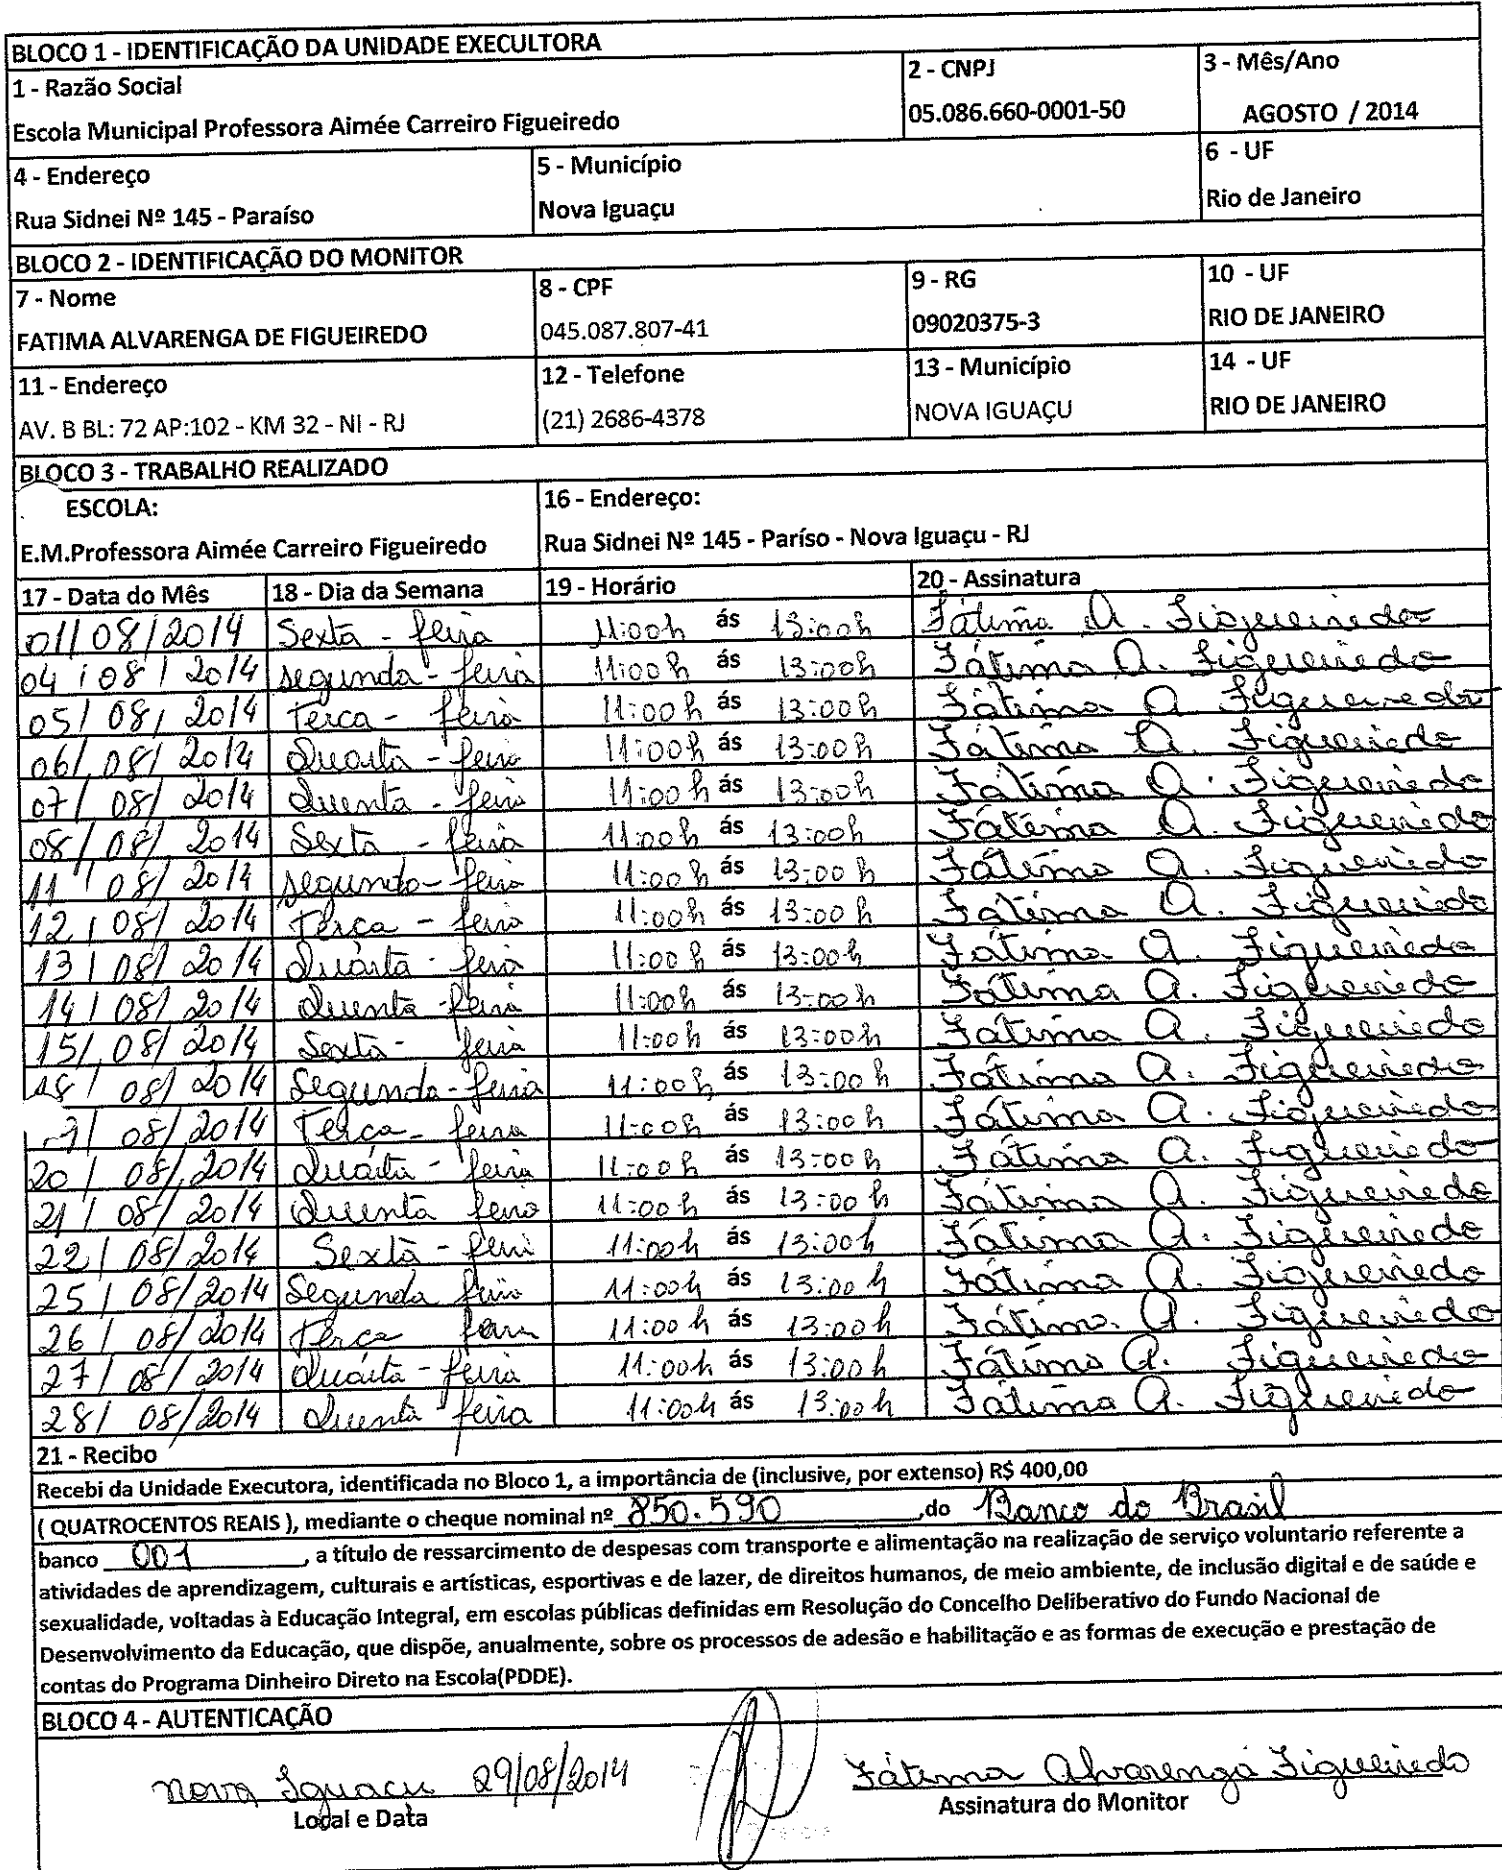 BLOCO 1 - IDENTIFICAÇÃO DA UNIDADE EXECULTORA
1 - Razão Social 2 - CNPJ 3 - Mês/Ano
Escola Municipal Professora Aimée Carreiro Figueiredo 05.086.660-0001-50 AGOSTO / 2014
4 - Endereço 5 - Município 6 - UF
Rua Sidnei Nº 145 - Paraíso Nova Iguaçu Rio de Janeiro
BLOCO 2 - IDENTIFICAÇÃO DO MONITOR
7 - Nome 8 - CPF 9 - RG 10 - UF
FATIMA ALVARENGA DE FIGUEIREDO 045.087.807-41 09020375-3 RIO DE JANEIRO
11 - Endereço 12 - Telefone 13 - Município 14 - UF
AV. B BL: 72 AP:102 - KM 32 - NI - RJ (21) 2686-4378 NOVA IGUAÇU RIO DE JANEIRO
BLOCO 3 - TRABALHO REALIZADO
ESCOLA: 16 - Endereço:
E.M.Professora Aimée Carreiro Figueiredo Rua Sidnei Nº 145 - Paríso - Nova Iguaçu - RJ
17 - Data do Mês 18 - Dia da Semana 19 - Horário 20 - Assinatura
01/08/2014 Sexta - feira 11:00h ás 13:00h Fátima A. Figueiredo
04/08/2014 segunda - feira 11:00h ás 13:00h Fátima A. Figueiredo
05/08/2014 Terca - feira 11:00h ás 13:00h Fátima A Figueiredo
06/08/2014 Quarta - feira 11:00h ás 13:00h Fátima A. Figueiredo
07/08/2014 Quenta - feira 11:00h ás 13:00h Fátima A. Figueiredo
08/08/2014 Sexta - feira 11:00h ás 13:00h Fátima A. Figueiredo
11/08/2014 segunda - feira 11:00h ás 13:00h Fátima A. Figueiredo
12/08/2014 Terça - feira 11:00h ás 13:00h Fátima A. Figueiredo
13/08/2014 Quarta - feira 11:00h ás 13:00h Fátima A. Figueiredo
14/08/2014 Quenta - feira 11:00h ás 13:00h Fátima A. Figueiredo
15/08/2014 Sexta - feira 11:00h ás 13:00h Fátima A. Figueiredo
18/08/2014 Segunda - feira 11:00h ás 13:00h Fátima A. Figueiredo
/08/2014 Terça - feira 11:00h ás 13:00h Fátima A. Figueiredo
20/08/2014 Quarta - feira 11:00h ás 13:00h Fátima A. Figueiredo
21/08/2014 Quenta feira 11:00h ás 13:00h Fátima A. Figueiredo
22/08/2014 Sexta - feira 11:00h ás 13:00h Fátima A. Figueiredo
25/08/2014 Segunda feira 11:00h ás 13:00h Fátima A. Figueiredo
26/08/2014 Terça feira 11:00h ás 13:00h Fátima A. Figueiredo
27/08/2014 Quarta - feira 11:00h ás 13:00h Fátima A. Figueiredo
28/08/2014 Quenta feira 11:00h ás 13:00h Fátima A. Figueiredo
21 - Recibo
Recebi da Unidade Executora, identificada no Bloco 1, a importância de (inclusive, por extenso) R$ 400,00
( QUATROCENTOS REAIS ), mediante o cheque nominal nº 850.590 ,do Banco do Brasil
banco 001 , a título de ressarcimento de despesas com transporte e alimentação na realização de serviço voluntario referente a
atividades de aprendizagem, culturais e artísticas, esportivas e de lazer, de direitos humanos, de meio ambiente, de inclusão digital e de saúde e
sexualidade, voltadas à Educação Integral, em escolas públicas definidas em Resolução do Concelho Deliberativo do Fundo Nacional de
Desenvolvimento da Educação, que dispõe, anualmente, sobre os processos de adesão e habilitação e as formas de execução e prestação de
contas do Programa Dinheiro Direto na Escola(PDDE).
BLOCO 4 - AUTENTICAÇÃO
Nova Iguacu 29/08/2014 Fátima Alvarenga Figueiredo
Local e Data Assinatura do Monitor